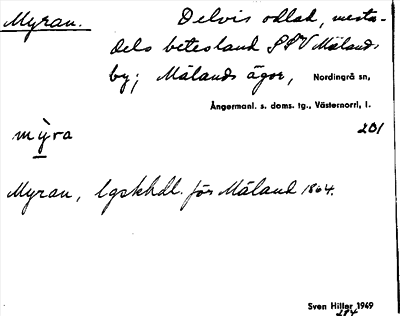 Myran. Delvis odlad, mesta-
dels betesland SSV Mälands
by; Mälands ägor, Nordingrå sn,
Ångermanl. s. doms. tg., Västernorrl, l.
mỳra 201
Myran, lgskhdl. för Mäland 1864.
Sven Hiller 1949
284